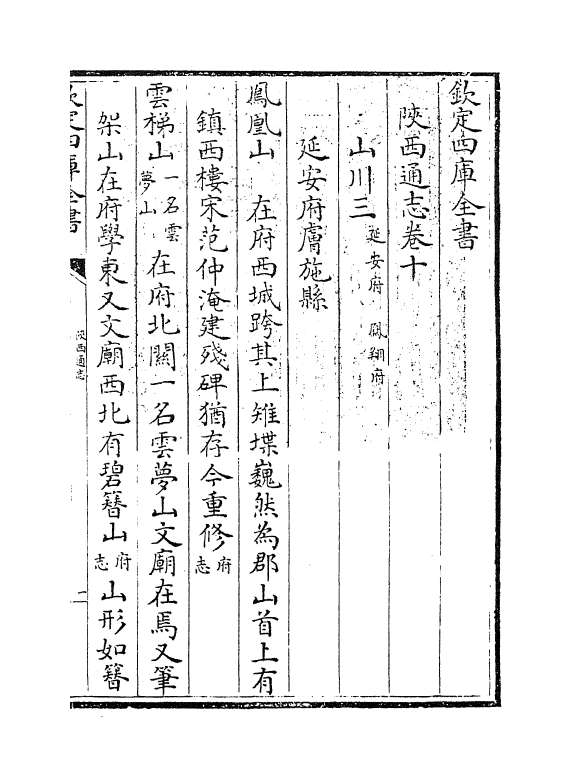 欽定四庫全書
陜西通志卷十
山川三 延安府 鳳翔府
延安府膚施縣
鳳凰山 在府西城跨其上雉堞巍然為郡山首上有
鎮西樓宋范仲淹建殘碑猶存今重修府志
雲梯山一名雲夢山 在府北關一名雲夢山文廟在焉又筆
架山在府學東又文廟西北有碧簪山府志山形如簪
欽定四庫全書
陜西通志